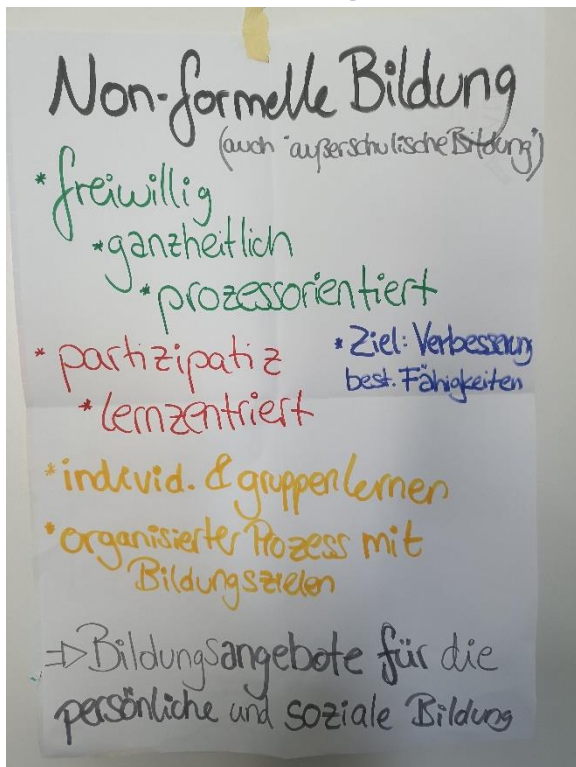 Non-formelle Bildung
(auch "außerschulische Bildung")
* freiwillig
* ganzheitlich
* prozessorientiert
* partizipatiz
* lernzentriert
* Ziel: Verbesserung
best. Fähigkeiten
* individ. & gruppenlernen
* organisierter Prozess mit
Bildungszielen
=> Bildungsangebote für die
persönliche und soziale Bildung